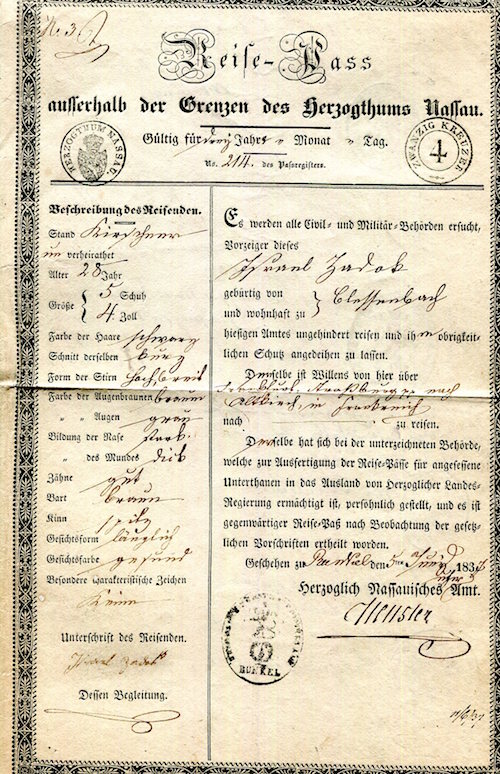 N. 3
Reise-Pass
ausserhalb der Grenzen des Herzogthums Nassau.
HERZOGTHUM NASSAU.
Gültig für drey Jahre " Monat " Tag.
ZWANZIG KREUZER
4
No. 214. des Passregisters.
Beschreibung des Reisenden.
Stand Kirschner
un verheirathet
Alter 28 Jahr
Größe { 5 Schuh
4 Zoll
Farbe der Haare schwarz
Schnitt derselben kurz
Form der Stirn hoch breit
Farbe der Augenbraunen braun
" " Augen grau
Bildung der Nase stark
" des Mundes dick
Zähne gut
Bart braun
Kinn spitz
Gesichtsform länglich
Gesichtsfarbe gesund
Besondere charakteristische Zeichen
Keine
Unterschrift des Reisenden.
Israel Zadok
Dessen Begleitung.
Es werden alle Civil- und Militär-Behörden ersucht,
Vorzeiger dieses
Israel Zadok
gebürtig von
und wohnhaft zu } Blessenbach
hiesigen Amtes ungehindert reisen und ihm obrigkeit-
lichen Schutz angedeihen zu lassen.
Derselbe ist Willens von hier über
nach
Altkirch, in Frankreich
nach zu reisen.
Derselbe hat sich bei der unterzeichneten Behörde,
welche zur Ausfertigung der Reise-Pässe für angesessene
Unterthanen in das Ausland von Herzoglicher Landes-
Regierung ermächtigt ist, persöhnlich gestellt, und es ist
gegenwärtiger Reise-Paß nach Beobachtung der gesetz-
lichen Vorschriften ertheilt worden.
Geschehen zu Runkel den 5ten 183
Herzoglich Nassauisches Amt.
RUNKEL